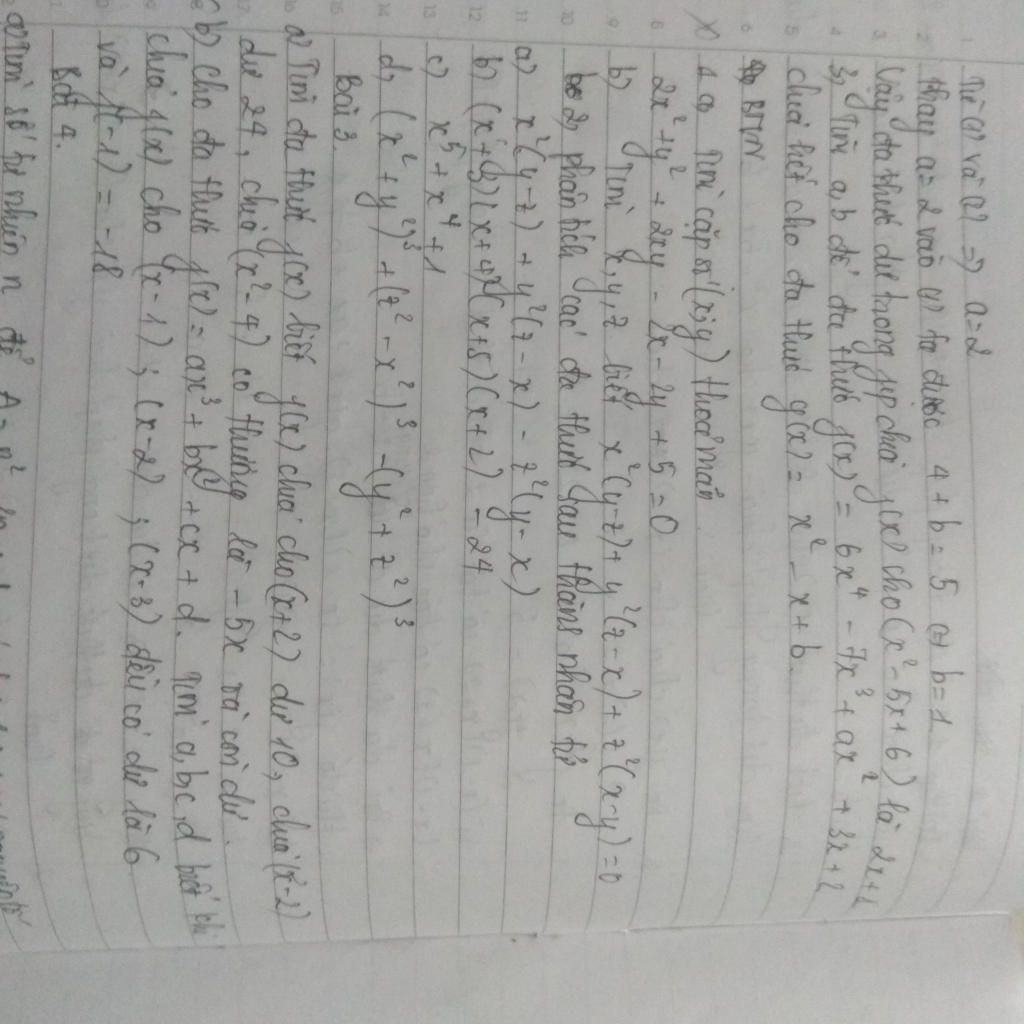 Từ (1) và (2) => a=2
thay a=2 vào (1) ta được 4+b=5 <=> b=1
Vậy đa thức dư trong phép chia f(x) cho (x²-5x+6) là 2x+1
3, Tìm a,b để đa thức f(x) = 6x⁴ - 7x³ + ax² + 3x+2
chia hết cho đa thức g(x) = x² - x + b.
BTVN
1. a, Tìm cặp số (x;y) thoả mãn
2x²+y² + 2xy - 2x - 2y + 5 = 0
b) Tìm x,y,z biết x²(y-z) + y²(z-x) + z²(x-y) = 0
2, phân tích các đa thức sau thành nhân tử
a) x²(y-z) + y²(z-x) - z²(y-x)
b) (x+3)(x+4)(x+5)(x+2) - 24
c) x⁵ + x⁴ + 1
d, (x² + y²)³ + (z² - x²)³ - (y² + z²)³
Bài 3.
a) Tìm đa thức f(x) biết f(x) chia cho (x+2) dư 10, chia (x-2)
dư 24, chia (x²-4) có thương là -5x và còn dư.
b) cho đa thức f(x) = ax³ + bx² + cx + d. Tìm a,b,c,d biết khi
chia f(x) cho (x-1) ; (x-2) ; (x-3) đều có dư là 6
và f(-1) = -18
Bài 4.
a) Tìm số tự nhiên n để A = n²